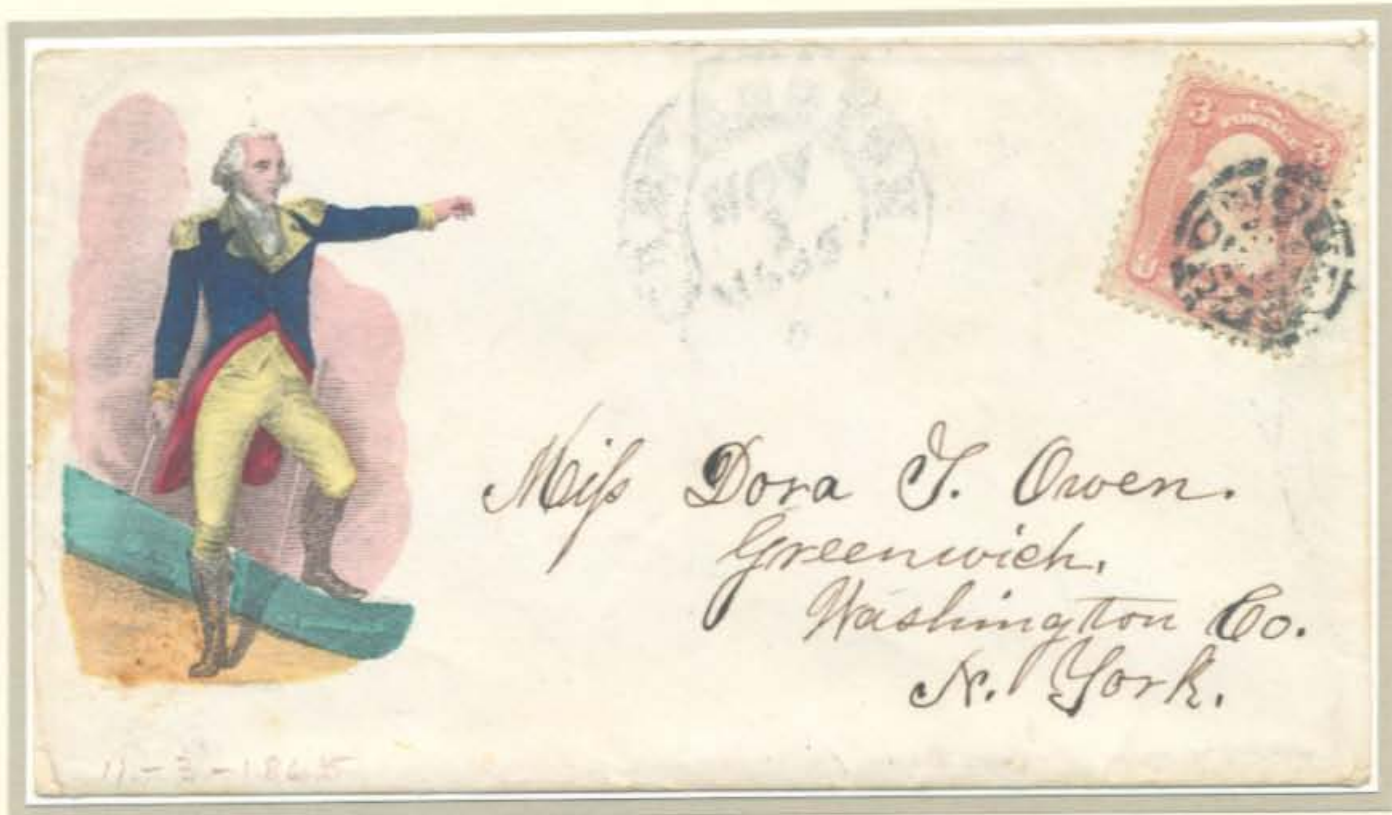 NOV
3
3
U.S. POSTAGE
3
Miſs Dora T. Owen.
Greenwich.
Washington Co.
N. York.
11-3-1865